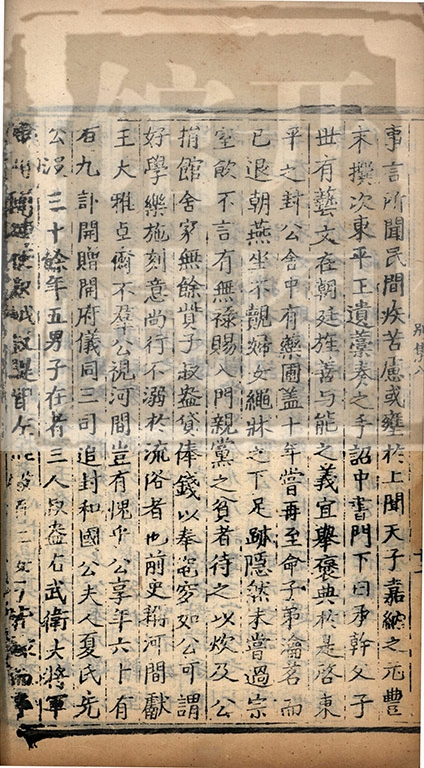 事言所聞民間疾苦慮或壅於上聞天子嘉納之元豐
末撰次東平王遺藁奏之手詔中書門下曰承幹父子
世有藝文在朝廷旌善與能之義宜舉褒典於是啓東
平之封公舍中有藥圃蓋十年嘗再至命子弟瀹茗而
已退朝燕坐不覿婦女繩牀之下足跡隱然未嘗過宗
室飲不言有無祿賜入門親黨之貧者待之以炊及公
捐館舍家無餘貲子叔盎貸俸錢以奉窀穸如公可謂
好學樂施刻意尚行不溺於流俗者也前史稱河間獻
王大雅卓爾不羣公視河間豈有愧乎公享年六十有
右九訃聞贈開府儀同三司追封和國公夫人夏氏先
公沒三十餘年五男子在者三人叔盎右武衛大將軍
別集八